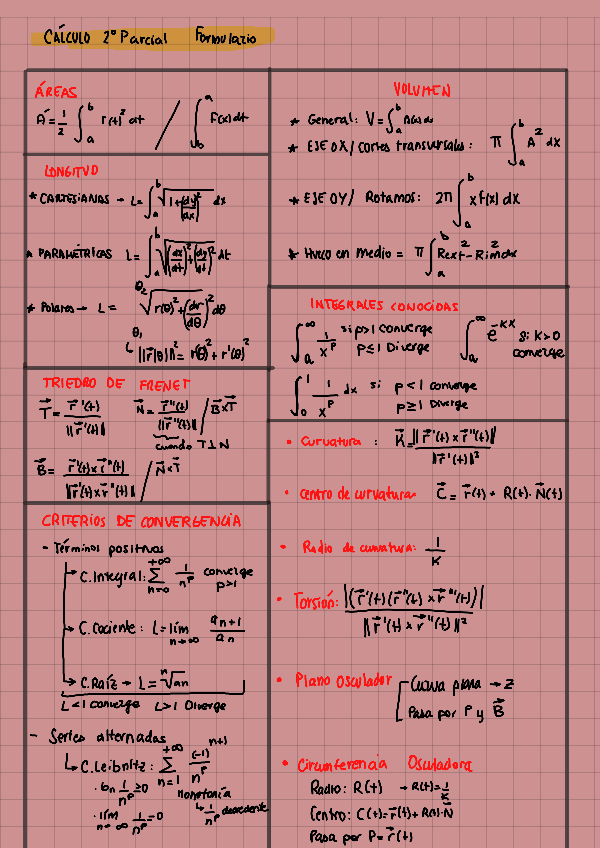 CÁLCULO 2º Parcial Formulario
ÁREAS
A = 1/2 ∫_a^b r(t)² dt / ∫_b^a F(x) dt
LONGITUD
* CARTESIANAS → L = ∫_a^b √(1+(dy/dx)²) dx
* PARAMÉTRICAS L = ∫_a^b √((dx/dt)²+(dy/dt)²) dt
* Polares → L = ∫_θ₁^θ₂ √(r(θ)²+(dr/dθ)²) dθ
↳ ||r⃗'(θ)||² = r(θ)² + r'(θ)²
TRIEDRO DE FRENET
T⃗ = r⃗'(t) / ||r⃗'(t)|| N⃗ = r⃗''(t) / ||r⃗''(t)|| / B⃗xT⃗
cuando T⊥N
B⃗ = r⃗'(t) x r⃗''(t) / ||r⃗'(t) x r⃗''(t)|| / N⃗xT⃗
CRITERIOS DE CONVERGENCIA
- Términos positivos
→ C.Integral: Σ_{n=0}^{+∞} 1/n^p converge p>1
→ C.Cociente: L = lím_{n→∞} a_{n+1}/a_n
→ C.Raíz → L = ⁿ√an
L<1 converge L>1 Diverge
- Series alternadas
↳ C.Leibnitz: Σ_{n=1}^{+∞} (-1)^{n+1}/n^p
· bn 1/n^p ≥0 Monotonía
· lím_{n→∞} 1/n^p = 0 ↳ 1/n^p decredente
VOLUMEN
* General: V = ∫_a^b A(x) dx
* EJE OX/ cortes transversales: π ∫_a^b A² dx
* EJE OY/ Rotamos: 2π ∫_a^b x f(x) dx
* Hueco en medio = π ∫_a^b Rext² - Rin² dx
INTEGRALES CONOCIDAS
∫_a^∞ 1/x^p si p>1 converge p≤1 Diverge ∫_a^∞ e^{-kx} si k>0 converge
∫_0^1 1/x^p dx si p<1 converge p≥1 Diverge
• Curvatura : K⃗ = ||r⃗'(t) x r⃗''(t)|| / ||r⃗'(t)||²
• centro de curvatura C⃗ = r⃗(t) + R(t)·N⃗(t)
• Radio de curvatura: 1/K
• Torsión: |(r⃗'(t)(r⃗''(t) x r⃗'''(t))| / ||r⃗'(t) x r⃗''(t)||²
• Plano Osculador Curva plana → Z
Pasa por P y B⃗
• Circunferencia Osculadora
Radio: R(t) → R(t) = 1/K
Centro: C(t) = r⃗(t) + R(t)·N
Pasa por P = r⃗(t)